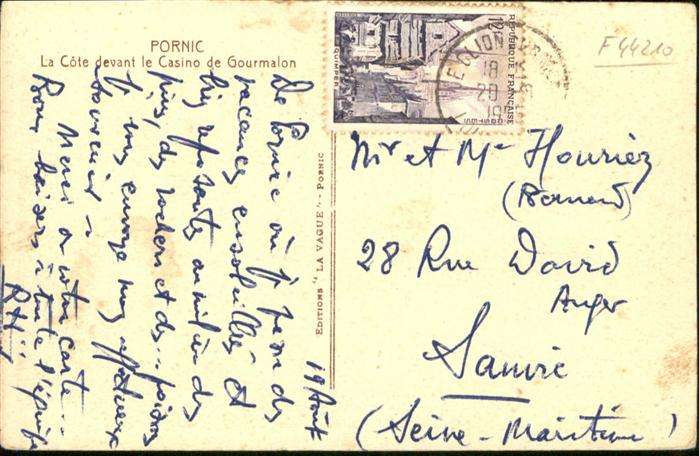 PORNIC
La Côte devant le Casino de Gourmalon
F44210
REPUBLIQUE FRANÇAISE
12F
QUIMPER
POSTES
18
20
EDITIONS "LA VAGUE" - PORNIC
19 Août
De Pornic où je passe des
vacances ensoleillées et
bien reposantes au milieu des
pins, des rochers et des.. poissons
je vous envoie mes affectueux
souvenirs.
Merci de votre carte...
Bons baisers à toute l'équipe
Mr et Me Houriez
(Bernard)
28 Rue David
Anger
Sanvic
(Seine-Maritime)